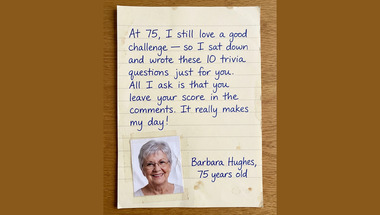 At 75, I still love a good
challenge — so I sat down
and wrote these 10 trivia
questions just for you.
All I ask is that you
leave your score in the
comments. It really makes
my day!
Barbara Hughes,
75 years old